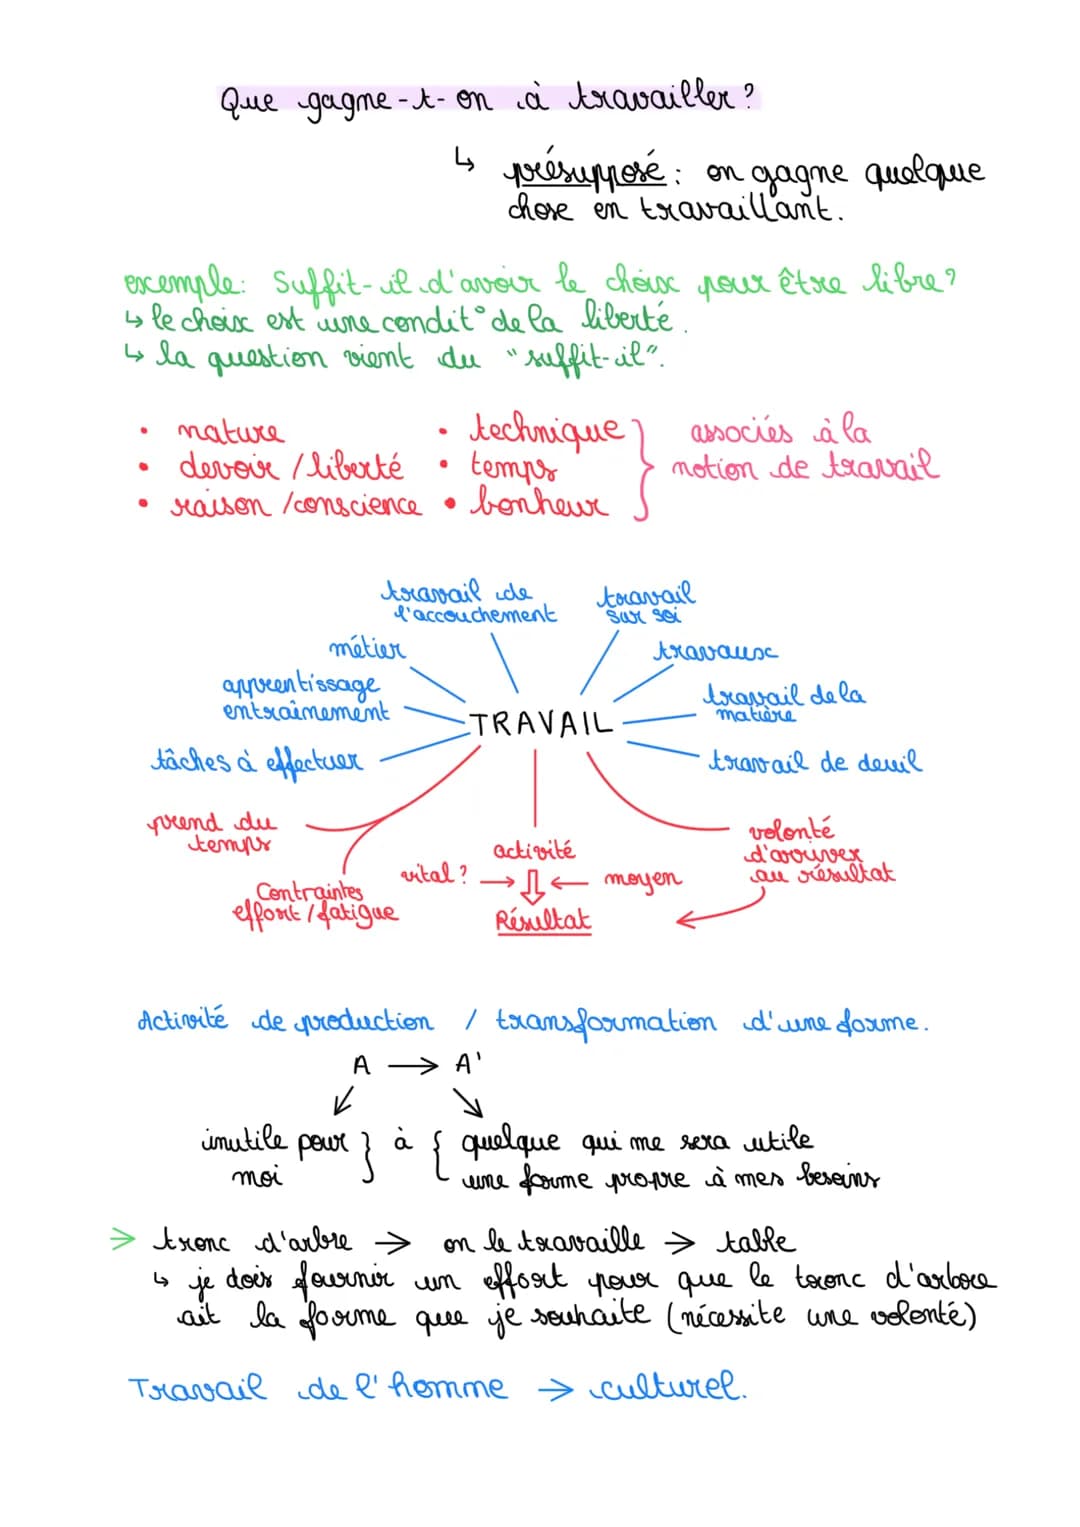 Que gagne-t-on à travailler ?
↳ présupposé : on gagne quelque
chose en travaillant.
exemple: Suffit-il d'avoir le choix pour être libre ?
↳ le choix est une condit° de la liberté.
↳ la question vient du "suffit-il".
• nature
• technique
• devoir / liberté
• temps
• raison / conscience
• bonheur
} associés à la
notion de travail
travail de
l'accouchement
travail
sur soi
métier
travaux
apprentissage
entraînement
travail de la
matière
TRAVAIL
tâches à effectuer
travail de deuil
prend du
temps
volonté
d'arouver
au résultat
activité
vital ? → ⇩ ← moyen
Contraintes
effort / fatigue
Résultat
Activité de production / transformation d'une forme.
A → A'
inutile pour
moi
} à {
quelque qui me sera utile
une forme propre à mes besoins
→ tronc d'arbre → on le travaille → table
↳ je dois fournir un effort pour que le tronc d'arbore
ait la forme que je souhaite (nécessite une volonté)
Travail de l'homme → culturel.